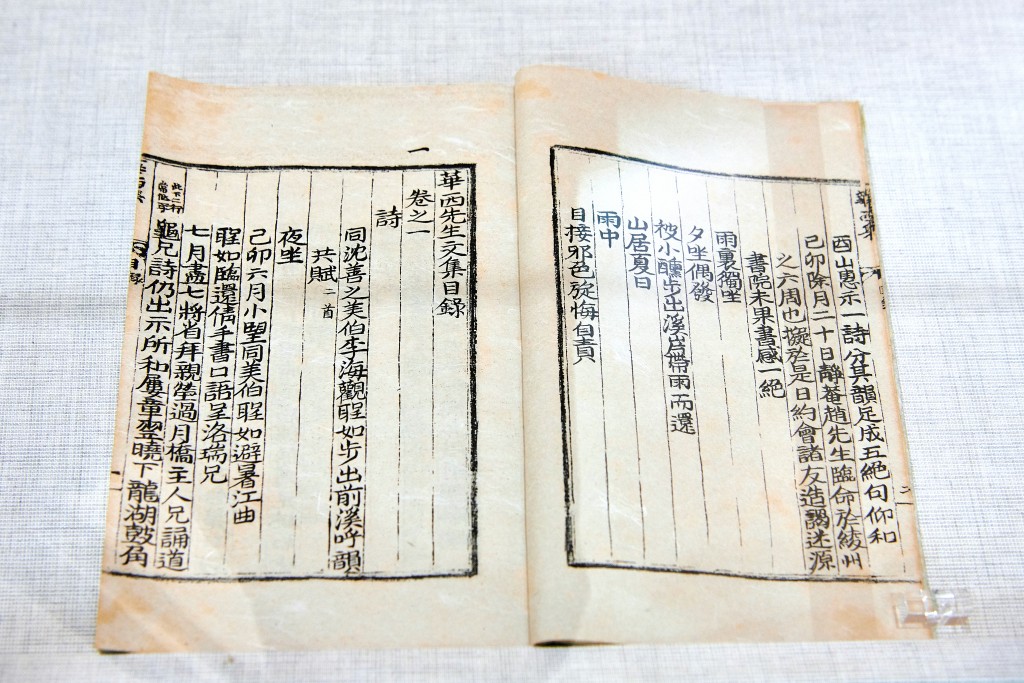 華西集
二
西山惠示一詩分其韻足成五絕句仰和
己卯除月二十日靜菴趙先生臨命於綾州
之六周也擬於是日約會諸友造謁迷源
書院未果書感一絕
雨裏獨坐
夕坐偶發
被小醺步出溪岸帶雨而還
山居夏日
雨中
目接邪色旋悔自責
一
華西先生文集目錄
卷之一
詩
同沈善之美伯李海觀聖如步出前溪呼韻
共賦二首
夜坐
己卯六月小望同美伯聖如避暑江曲
聖如臨還倩手書口語呈洛瑞兄
七月盡七將省拜親塋過月橋主人兄誦道
龜兄詩仍出示所和屢章翌曉下龍湖鼓角
目錄